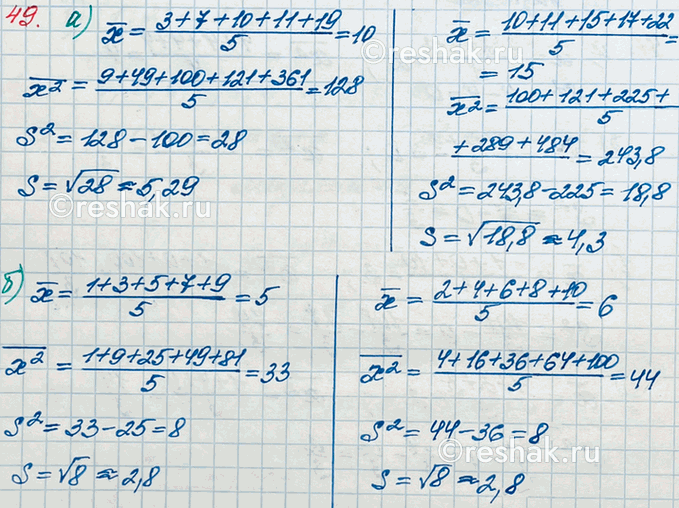 49. а) x̄ = (3+7+10+11+19)/5 = 10
x̄² = (9+49+100+121+361)/5 = 128
S² = 128 − 100 = 28
S = √28 ≈ 5,29
x̄ = (10+11+15+17+22)/5 =
= 15
x̄² = (100+121+225+)/5
(+289+484) = 243,8
S² = 243,8 − 225 = 18,8
S = √18,8 ≈ 4,3
б) x̄ = (1+3+5+7+9)/5 = 5
x̄² = (1+9+25+49+81)/5 = 33
S² = 33 − 25 = 8
S = √8 ≈ 2,8
x̄ = (2+4+6+8+10)/5 = 6
x̄² = (4+16+36+64+100)/5 = 44
S² = 44 − 36 = 8
S = √8 ≈ 2,8
©reshak.ru
©reshak.ru
©reshak.ru
©reshak.ru